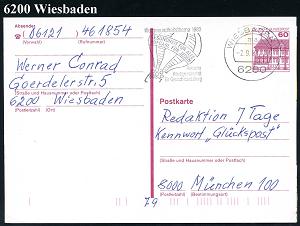 6200 Wiesbaden
Absender
06121 461854
(Vorwahl) (Rufnummer)
Werner Conrad
Goerdelerstr. 5
(Straße und Hausnummer oder Postfach)
6200 Wiesbaden
(Postleitzahl) (Ort)
WIESBADEN
6200
60
Postkarte
Redaktion 7 Tage
Kennwort „Glückspost"
(Straße und Hausnummer oder Postfach)
8000 München 100
(Postleitzahl) (Bestimmungsort)
79